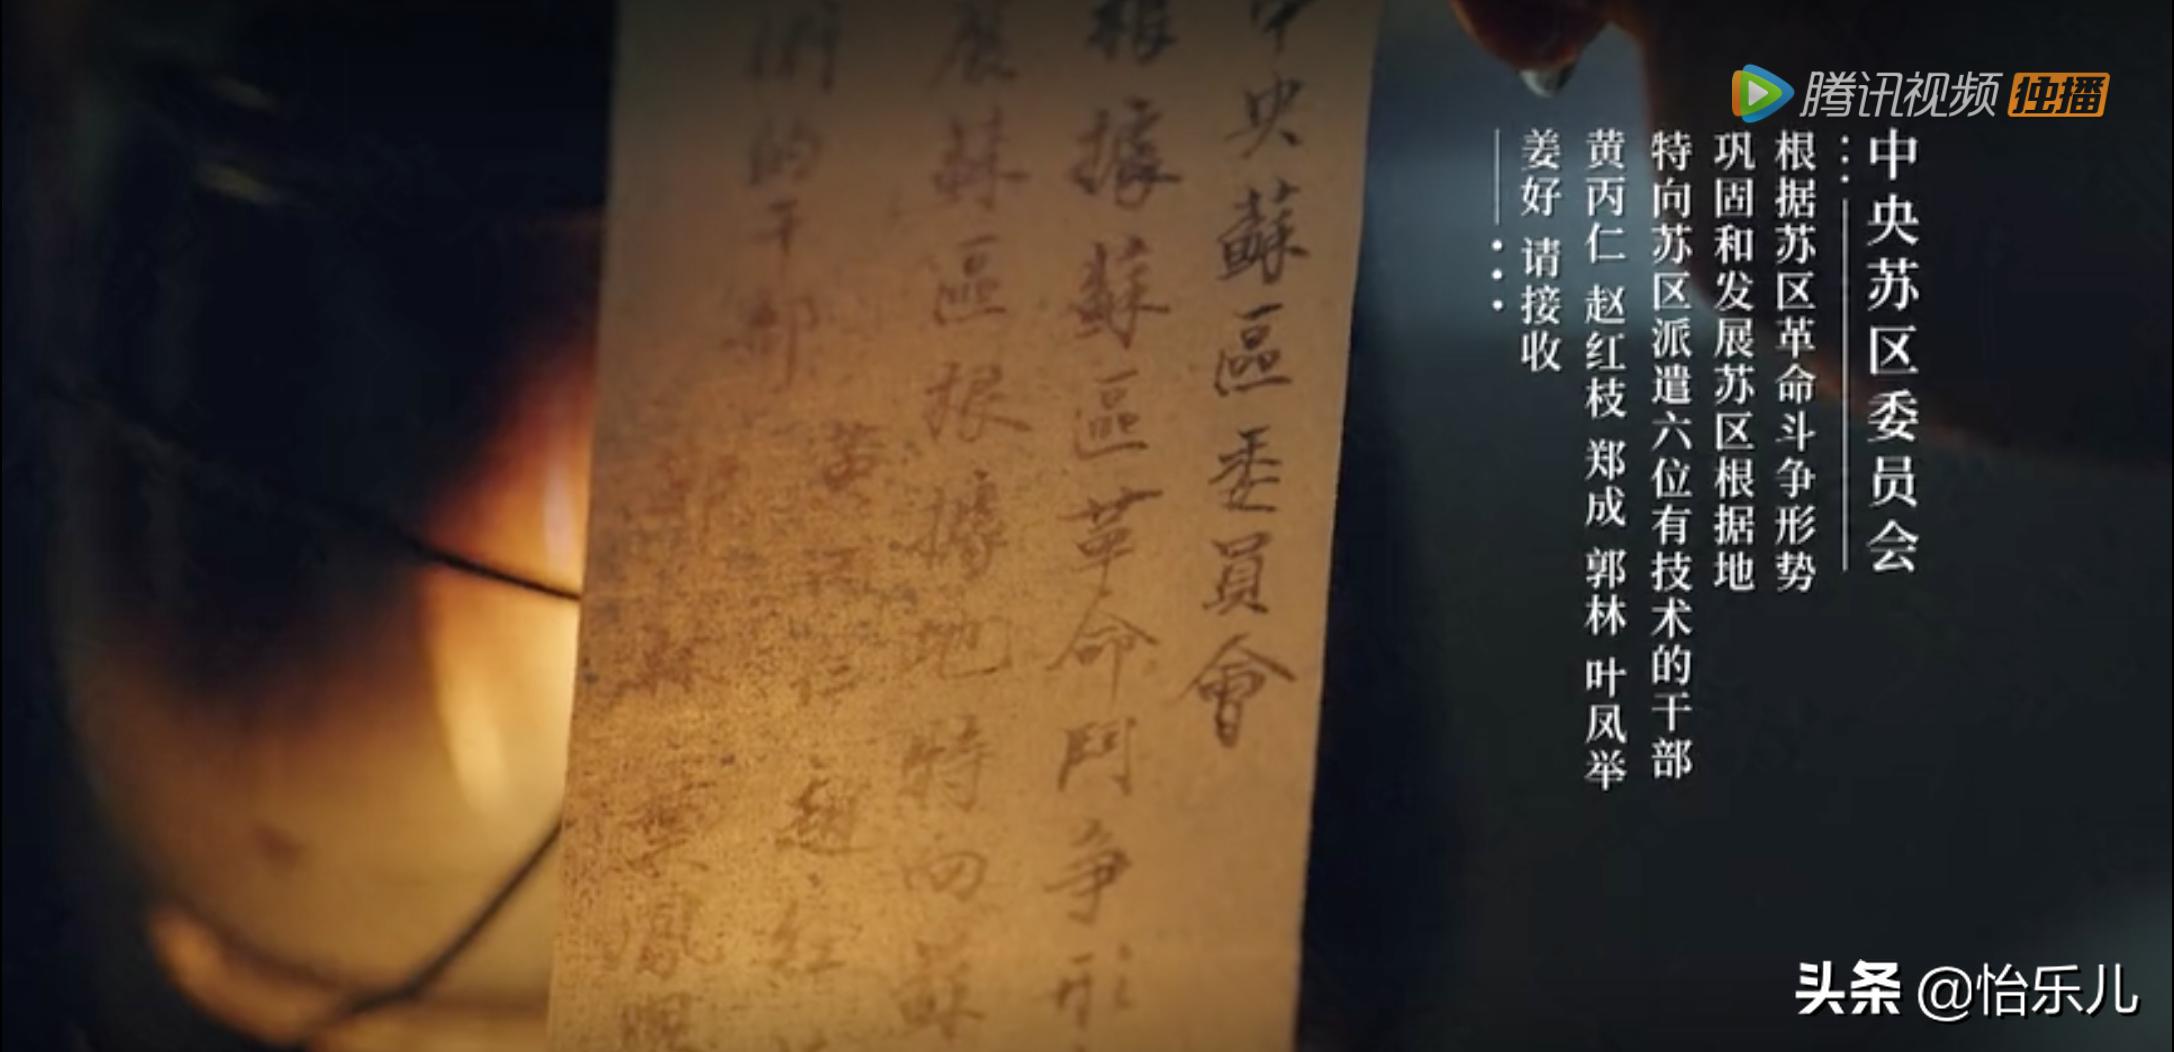 腾讯视频 独播
中央苏区委员会
根据苏区革命斗争形势
巩固和发展苏区根据地
特向苏区派遣六位有技术的干部
黄丙仁 赵红枝 郑成 郭林 叶凤举
姜好 请接收
中央蘇區委員會
根據蘇區革命鬥争形
展蘇區根據地特向蘇
的干部
黄丙仁 趙红
头条 @怡乐儿